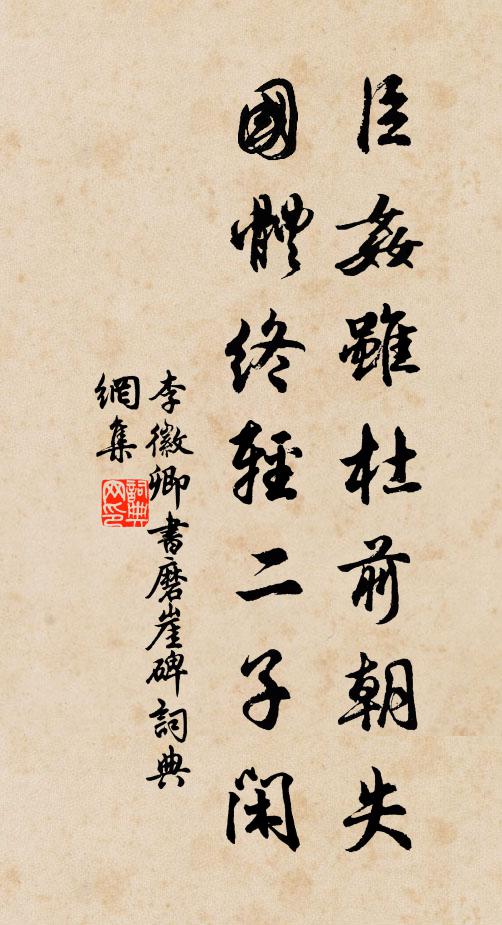 臣姦雖杜前朝失
國體終輕二子閑
李徽卿書磨崖碑詞典
網集
詞典
网印